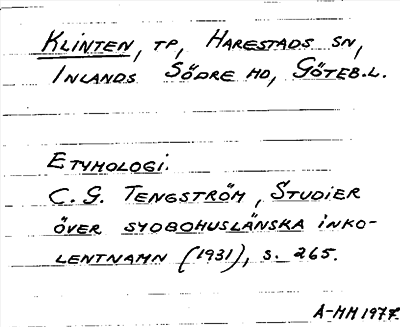 KLINTEN, TP, HARESTADS SN,
INLANDS SÖDRE HD, GÖTEB.L.
ETYMOLOGI.
C. G. TENGSTRÖM, STUDIER
ÖVER SYDBOHUSLÄNSKA INKO-
LENTNAMN (1931), S. 265.
A-MM 1977.